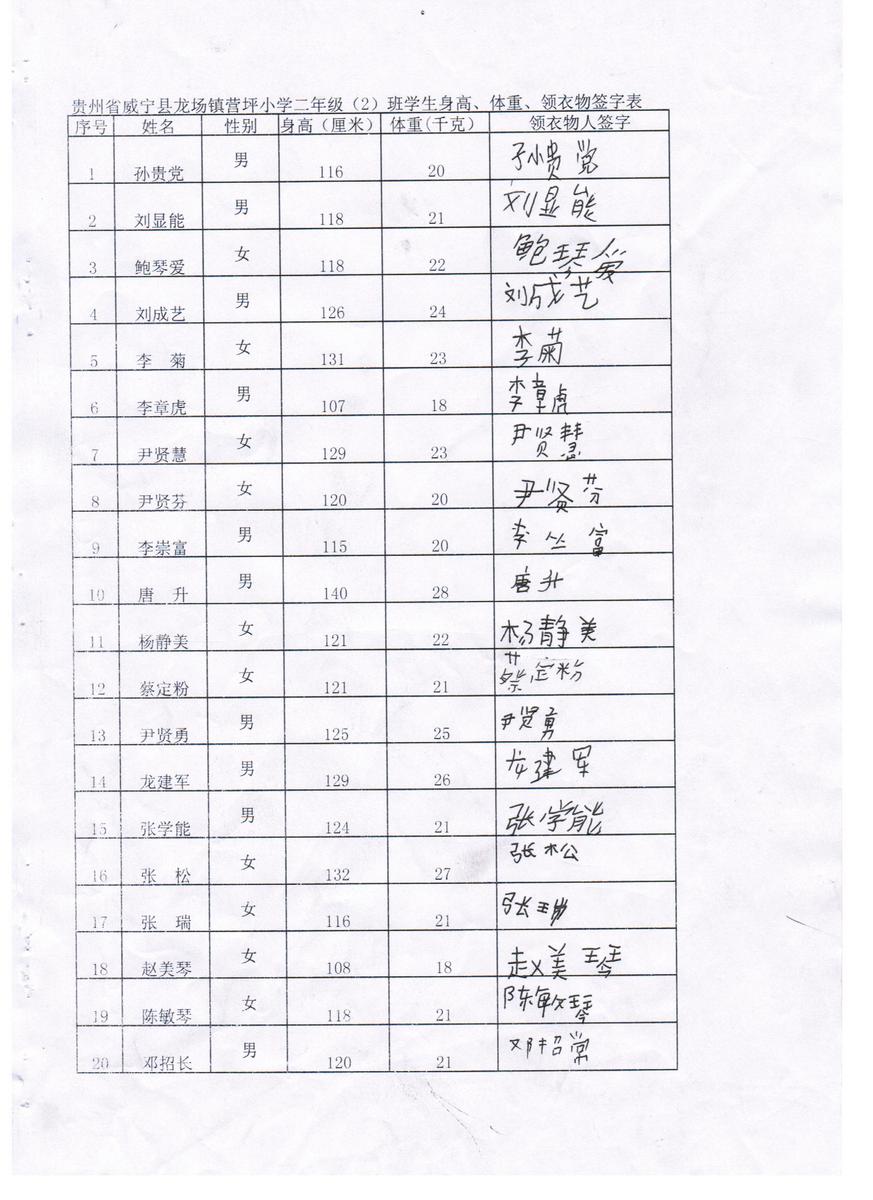 贵州省威宁县龙场镇营坪小学二年级（2）班学生身高、体重、领衣物签字表
序号 姓名 性别 身高（厘米） 体重(千克） 领衣物人签字
1 孙贵党 男 116 20 孙贵党
2 刘显能 男 118 21 刘显能
3 鲍琴爱 女 118 22 鲍琴爱
4 刘成艺 男 126 24 刘成艺
5 李 菊 女 131 23 李菊
6 李章虎 男 107 18 李章虎
7 尹贤慧 女 129 23 尹贤慧
8 尹贤芬 女 120 20 尹贤芬
9 李崇富 男 115 20 李丛富
10 唐 升 男 140 28 唐升
11 杨静美 女 121 22 杨静美
12 蔡定粉 女 121 21 蔡定粉
13 尹贤勇 男 125 25 尹贤勇
14 龙建军 男 129 26 龙建军
15 张学能 男 124 21 张学能
16 张 松 女 132 27 张松
17 张 瑞 女 116 21 张
18 赵美琴 女 108 18 赵美琴
19 陈敏琴 女 118 21 陈敏琴
20 邓招长 男 120 21 邓招常